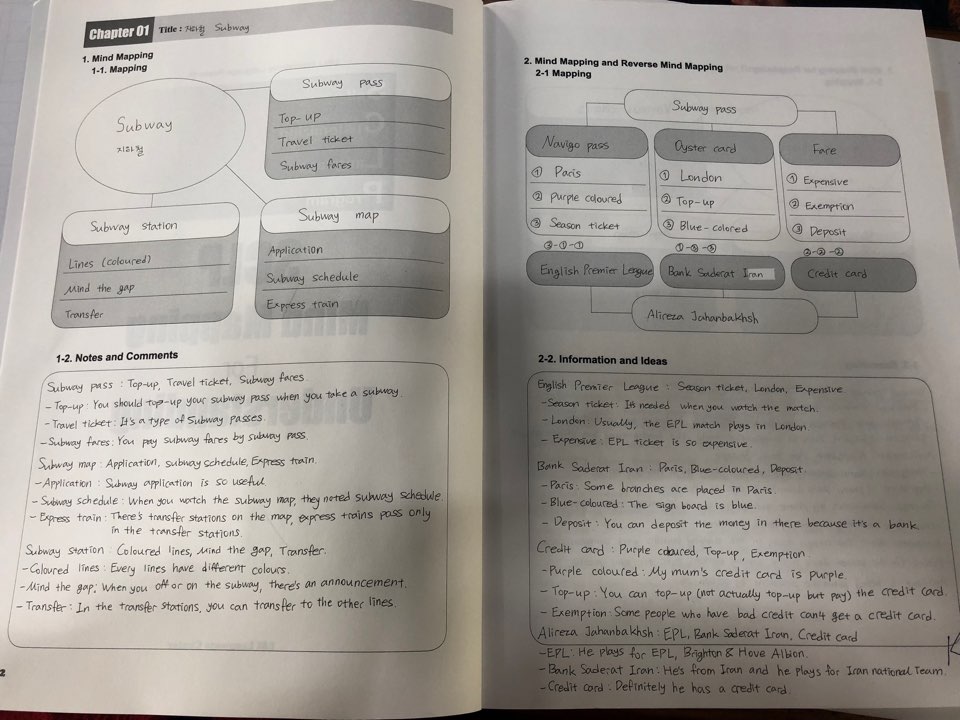 Chapter 01
Title : 지하철 Subway
1. Mind Mapping
1-1. Mapping
Subway
지하철
Subway pass
Top-up
Travel ticket
Subway fares
Subway station
Lines (coloured)
Mind the gap
Transfer
Subway map
Application
Subway schedule
Express train
1-2. Notes and Comments
Subway pass : Top-up, Travel ticket, Subway fares.
- Top-up : You should top-up your subway pass when you take a subway.
- Travel ticket : It's a type of Subway passes.
- Subway fares : You pay subway fares by subway pass.
Subway map : Application, subway schedule, Express train.
- Application : Subway application is so useful.
- Subway schedule : When you watch the subway map, they noted subway schedule.
- Express train : There's transfer stations on the map, express trains pass only
in the transfer stations.
Subway station : Coloured lines, Mind the gap, Transfer.
- Coloured lines : Every lines have different colours.
- Mind the gap : When you off or on the subway, there's an announcement.
- Transfer : In the transfer stations, you can transfer to the other lines.
2
2. Mind Mapping and Reverse Mind Mapping
2-1 Mapping
Subway pass
Navigo pass
① Paris
② Purple coloured
③ Season ticket
Oyster card
① London
② Top-up
③ Blue-colored
Fare
① Expensive
② Exemption
③ Deposit
③-①-①
①-③-③
②-②-②
English Premier League
Bank Saderat Iran
Credit card
Alireza Jahanbakhsh
2-2. Information and Ideas
English Premier League : Season ticket, London, Expensive
- Season ticket : It's needed when you watch the match.
- London : Usually, the EPL match plays in London.
- Expensive : EPL ticket is so expensive.
Bank Saderat Iran : Paris, Blue-coloured, Deposit.
- Paris : Some branches are placed in Paris.
- Blue-coloured : The sign board is blue.
- Deposit : You can deposit the money in there because it's a bank.
Credit card : Purple coloured, Top-up, Exemption.
- Purple coloured : My mum's credit card is purple.
- Top-up : You can top-up (not actually top-up but pay) the credit card.
- Exemption : Some people who have bad credit can't get a credit card.
Alireza Jahanbakhsh : EPL, Bank Saderat Iran, Credit card
- EPL : He plays for EPL, Brighton & Hove Albion.
- Bank Saderat Iran : He's from Iran and he plays for Iran national Team.
- Credit card : Definitely he has a credit card.